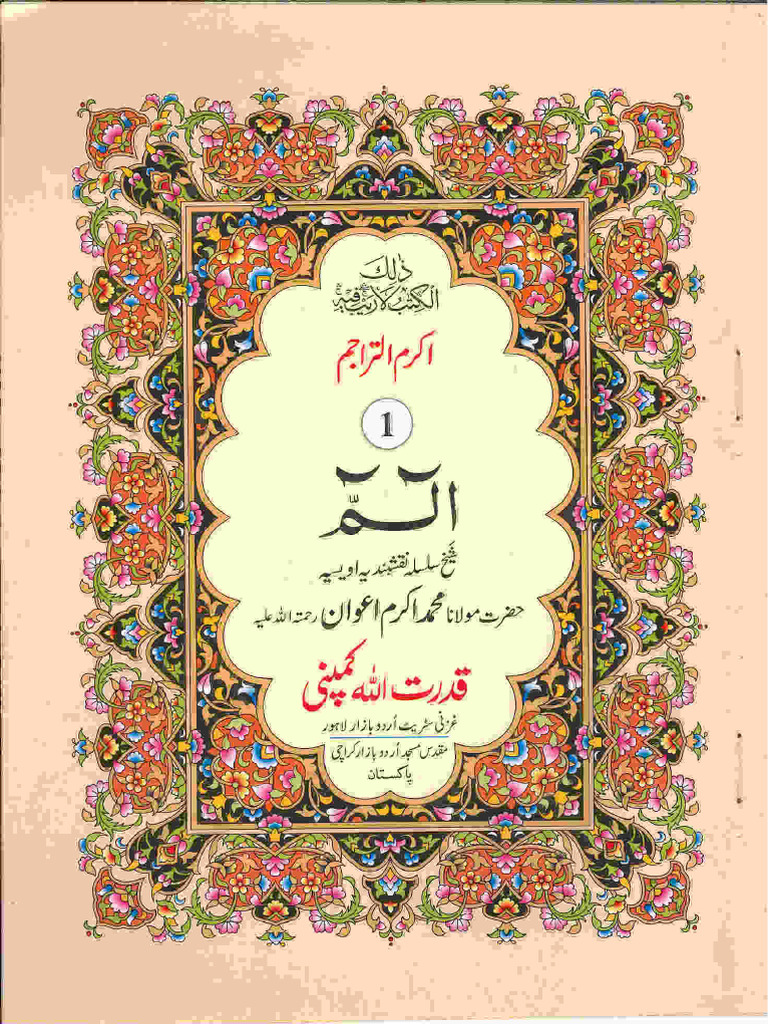 ذٰلِكَ
الْكِتٰبُ لَا رَيْبَ فِيْهِ
اکرم التراجم
1
الٓمّٓ
شیخ سلسلہ نقشبندیہ اویسیہ
حضرت مولانا محمد اکرم اعوان رحمتہ اللہ علیہ
قدرت اللہ کمپنی
غزنی سٹریٹ اُردو بازار لاہور
مقدس مسجد اُردو بازار کراچی
پاکستان